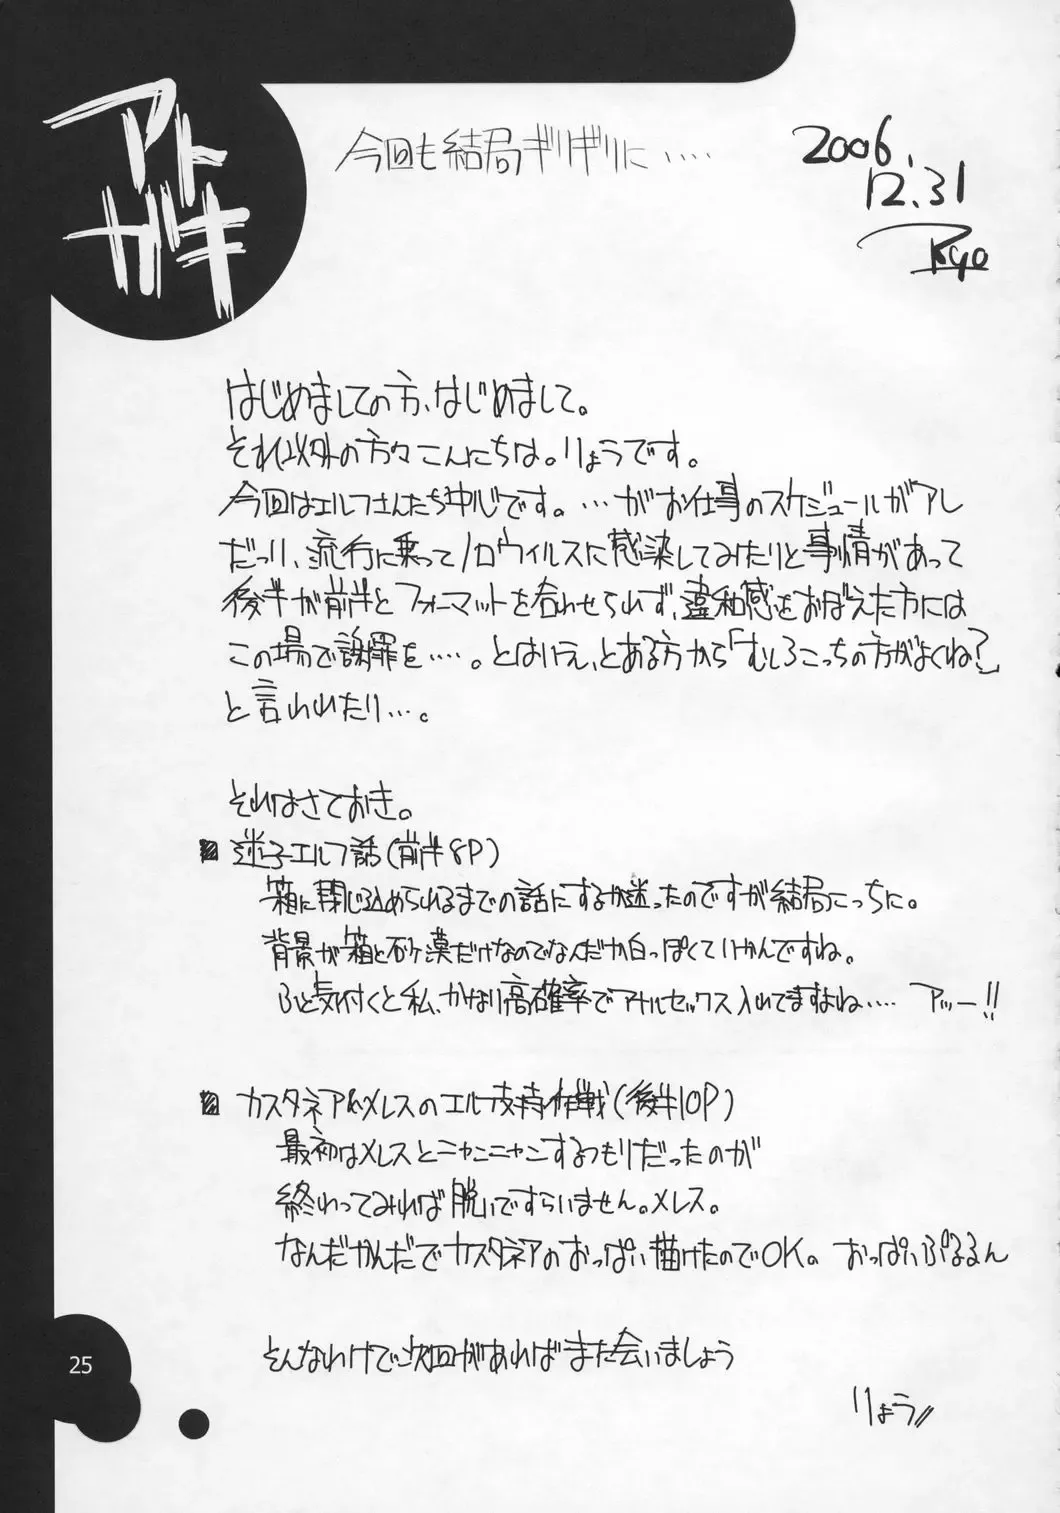 アト
ガキ
今回も結局ギリギリに‥‥
2006.
12.31
Ryo
はじめましての方、はじめまして。
それ以外の方々こんにちは。りょうです。
今回はエルフさんたち中心です。…がお仕事のスケジュールがアレ
だったり、流行に乗ってノロウィルスに感染してみたりと事情があって
後半が前半とフォーマットを合わせられず、違和感をおぼえた方には
この場で謝罪を‥‥。とはいえ、とある方から「むしろこっちの方がよくね?」
と言われたり…。
それはさておき。
迷子エルフ話(前半8P)
箱に閉じ込められるまでの話にするか迷ったのですが結局こっちに。
背景が箱と石ヶ藁だけなのでなんだか白っぽくていかんですね。
ふと気付くと私、かなり高確率でアナルセックス入れてますよね‥‥ アッー!!
カスタネアwメレスのエルフ支持作戦(後半10P)
最初はメレスとニャンニャンするつもりだったのが
終わってみれば脱いですらいません。メレス。
なんだかんだでカスタネアのおっぱい描けたのでOK。おっぱいぷるるん
そんなわけで次回があればまた会いましょう
りょう//
25